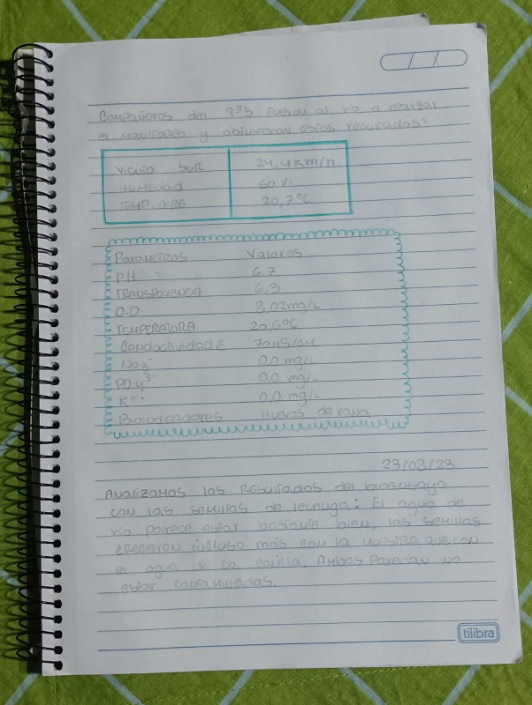 Compañeros del 9º5 fueron al río a realizar
el monitoreo y obtuvieron estos resultados:
Viento SUR 24,4 km/h
Humedad 60 %
TEMP. AIRE 20,7ºC
Parametros Valores
PH : 6.7
TRANSPARENCIA 6.3
O.D 8,02mg/L
TEMPERATURA 20,6ºC
Conductividad: 70 uS/cm
NO3- 0.0 mg/L
PO4 3- 0.0 mg/L
K+: 0.0 mg/L
Bioindicadores Huevos de rana
23/03/23
Analizamos los Resultados del bioensayo
con las semillas de lechuga: El agua de
río parece estar bastante bien, las semillas
crecieron incluso más con la muestra que con
el agua de la canilla. Ambas parecían no
estar contaminadas.
tilibra